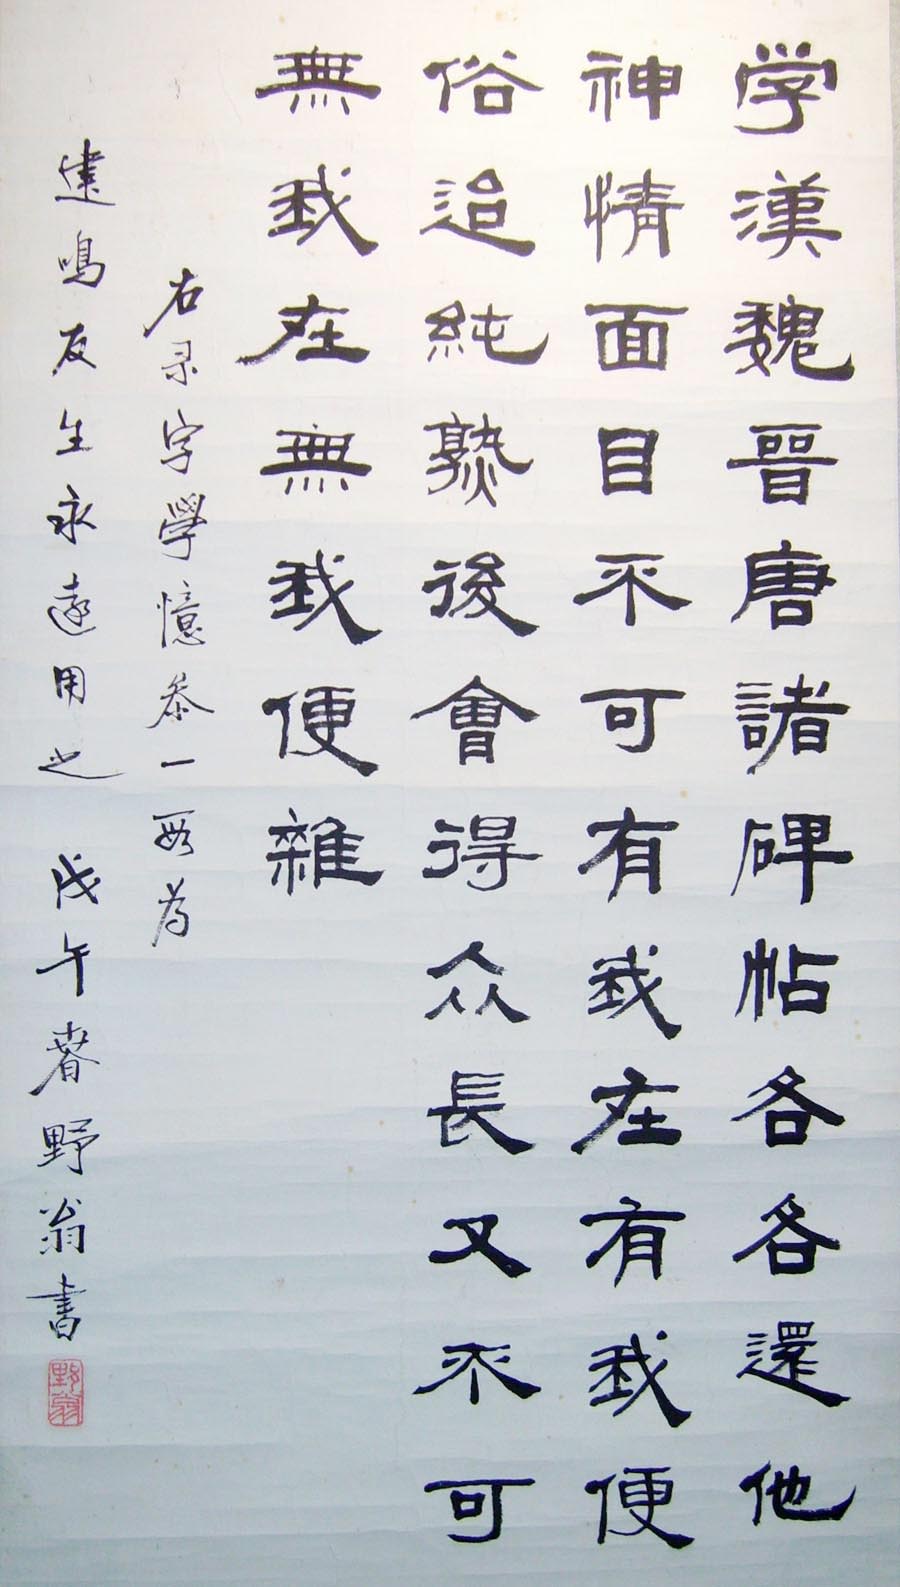 学漢魏晉唐諸碑帖各各還他
神情面目不可有我在有我便
俗迨純熟後會得众長又不可
無我在無我便雜
右录字學憶参一段为
建鳴友生永遠用之 戊午春野翁書
野翁